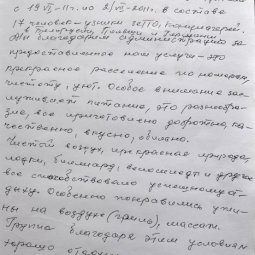 с 19/VI-11г. по 2/VII-2011г. в составе
17 человек - узники гетто, концлагерей.
в Беларуси, Польши, Германии
Мы благодарим администрацию за
предоставленное нам услуги - это
прекрасное расселение по номерам,
чистоту, уют. Особое внимание зас-
луживает питание, это разнообра-
зие, все приготовлено добротно, ка-
чественно, вкусно, обильно.
Чистый воздух, прекрасная природа,
лодки, биллиард, велосипеды и другое
все способствовало успешному от-
дыху. Особенно понравились ужи-
ны на воздухе (гриль), массаж.
Группа благодаря этим условиям
хорошо